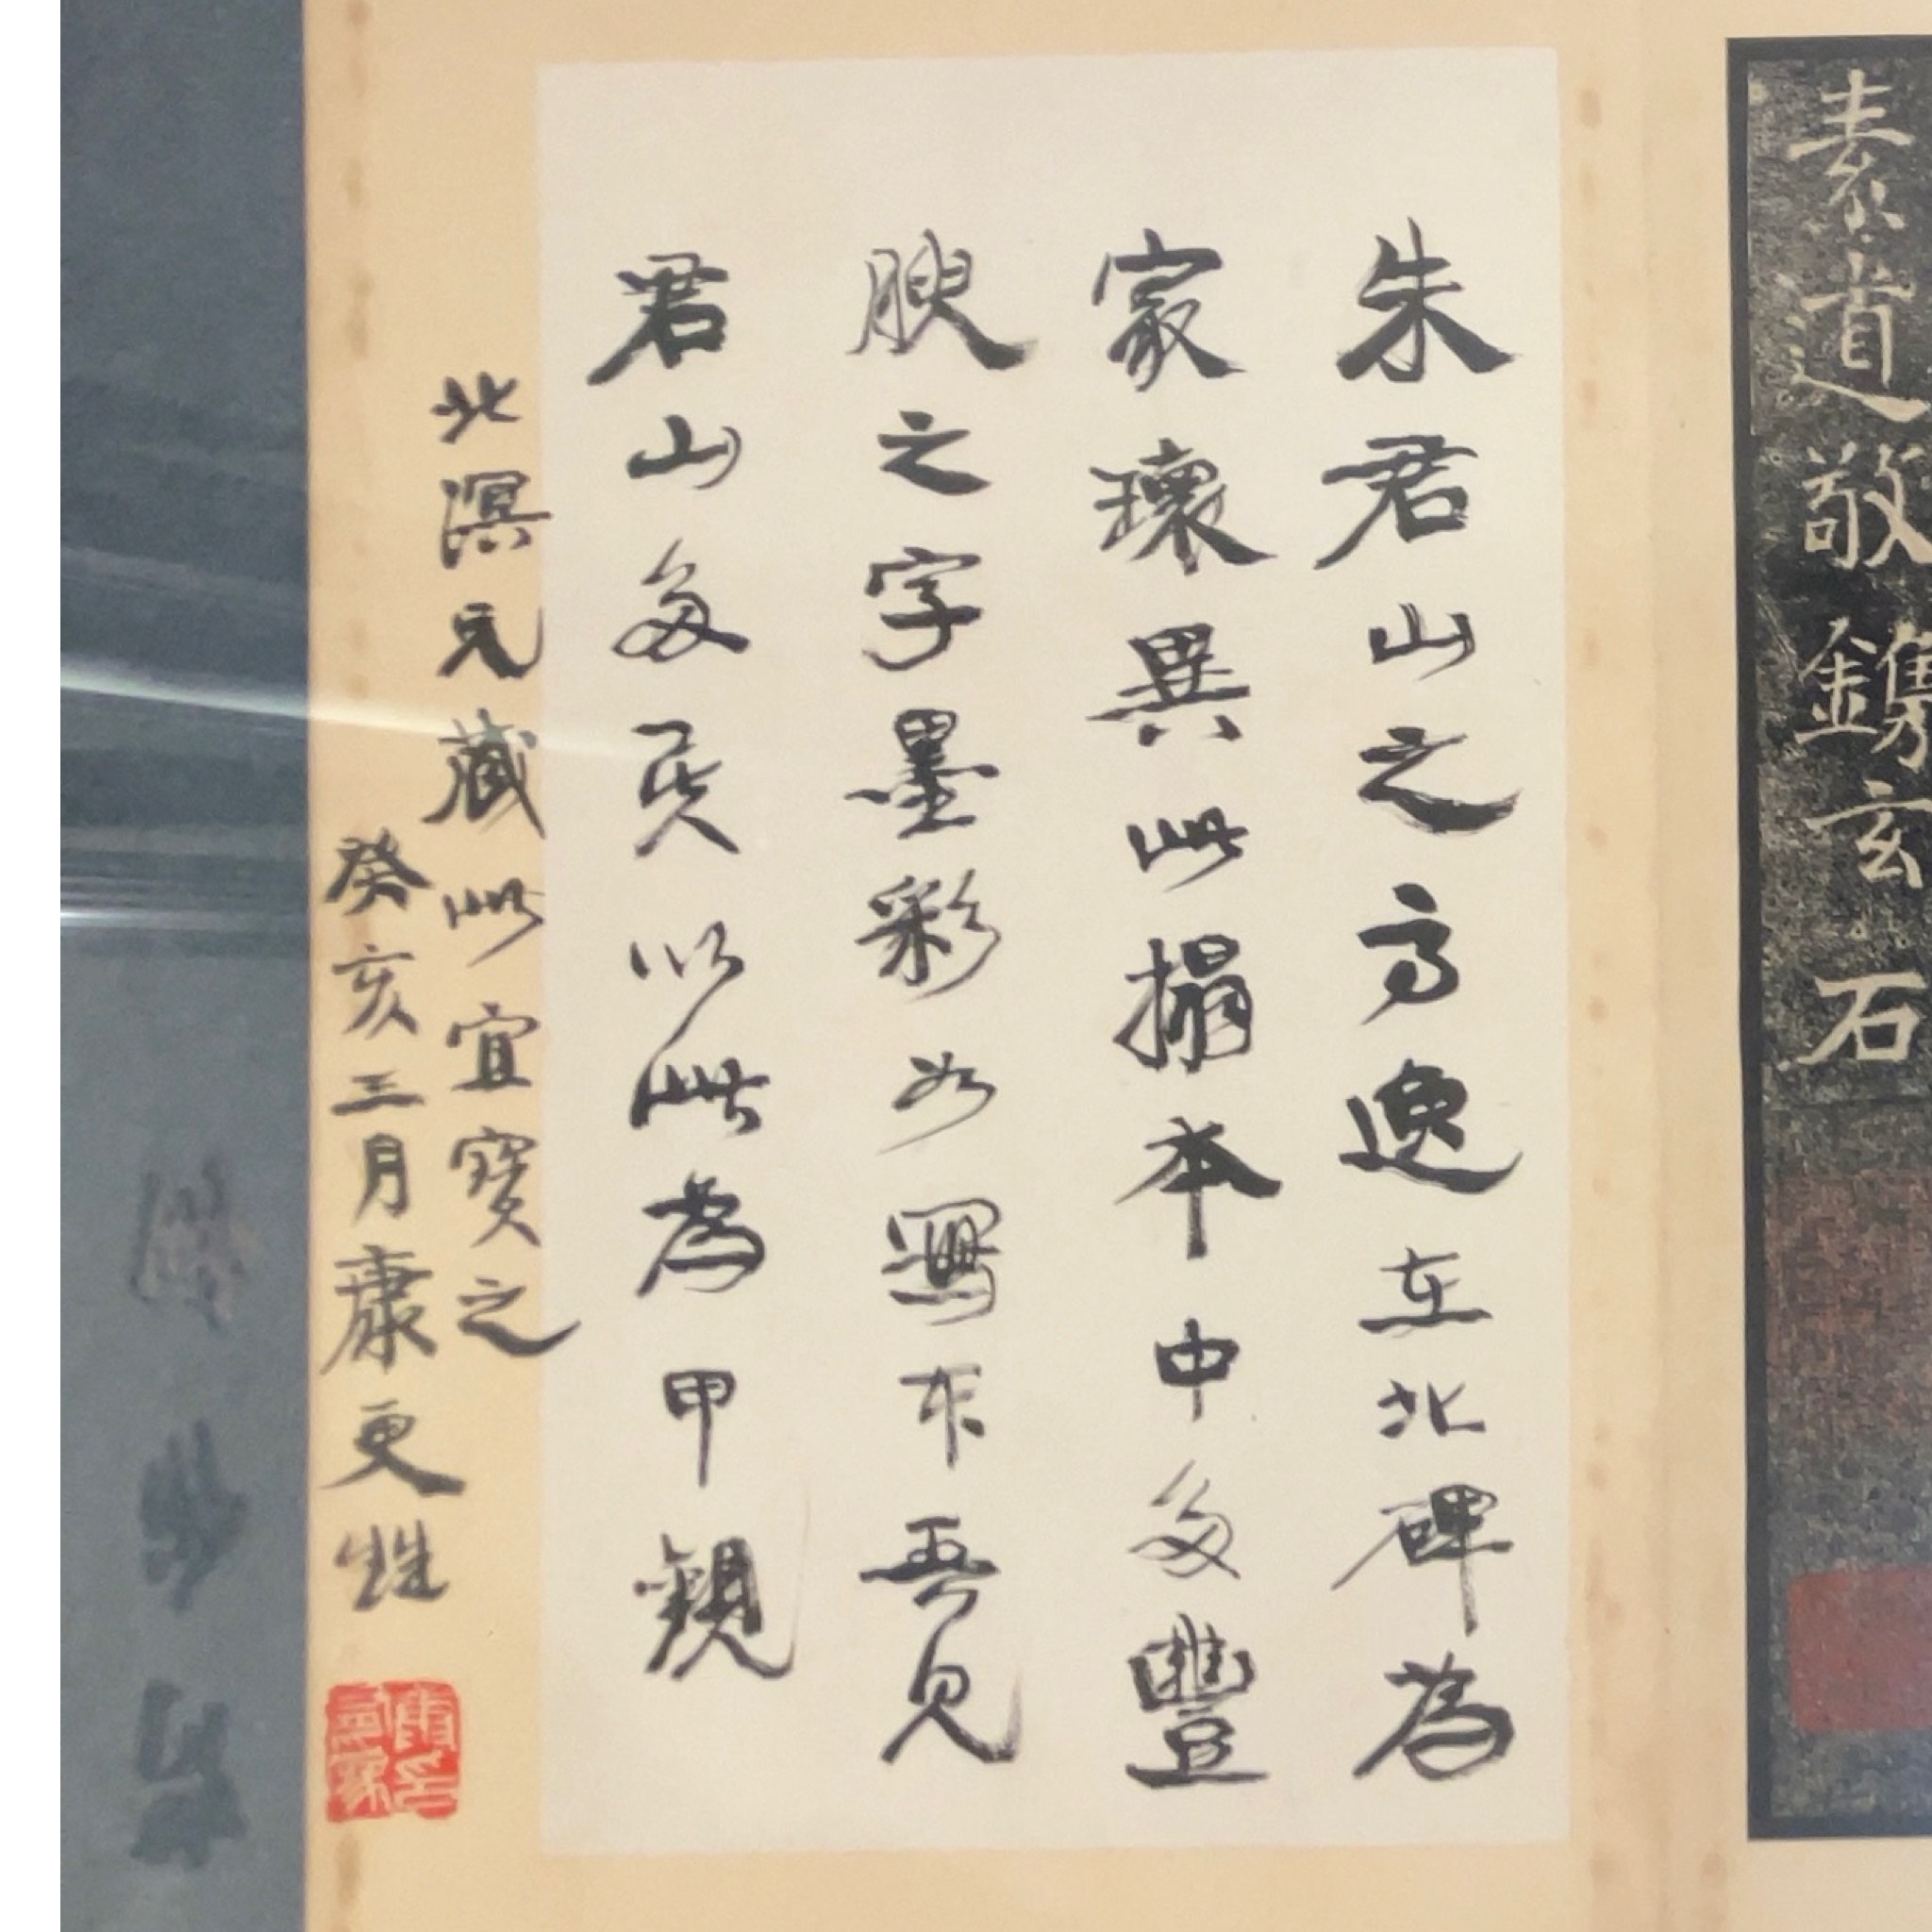 素道敬鐫玄石
朱君山之高逸在北碑為
家瓌異此搨本中多豐
腴之字墨彩如寫吾見
君山多矣以此為甲觀
北溟兄藏此宜寶之
癸亥三月康更甡